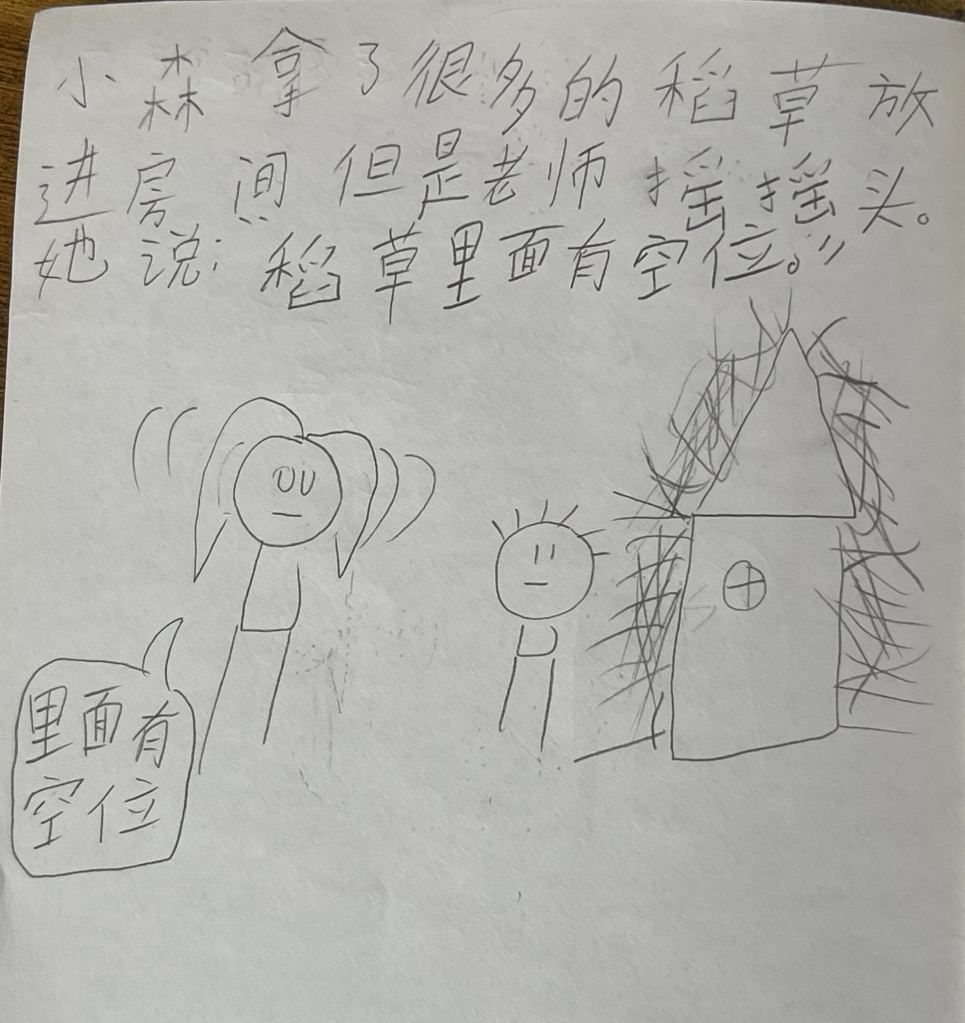 小森拿了很多的稻草放
进房间但是老师摇摇头。
她说:稻草里面有空位。”
里面有
空位